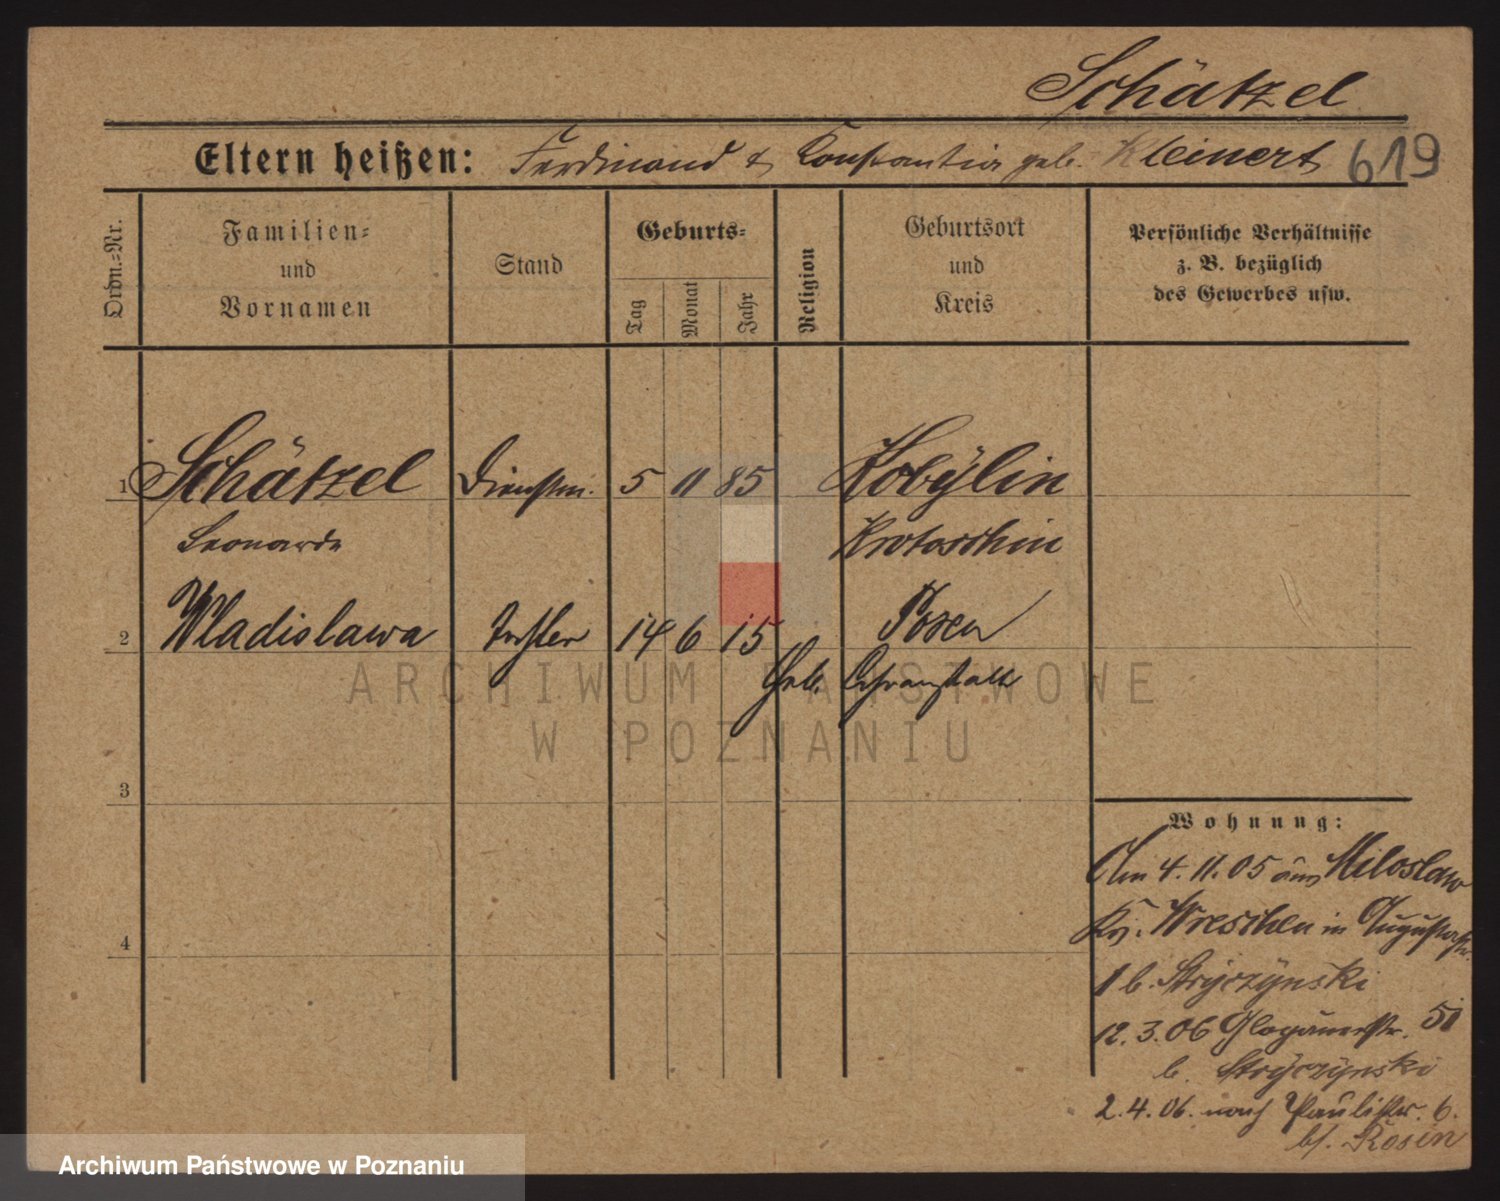 Schätzel
Eltern heißen: Ferdinand & Constantia geb. Kleinert 619
Ordn.-Nr.
Familien- und Vornamen
Stand
Geburts-
Tag
Monat
Jahr
Religion
Geburtsort und Kreis
Persönliche Verhältnisse
z. B. bezüglich
des Gewerbes usw.
1 Schätzel Dienstm. 5 11 85 Kobylin
Leonarde Krotoschin
2 Wladislawa Tochter 14 6 15 Posen
Geb.
3
4
Wohnung:
Am 4.11.05 aus Miloslaw
Kr. Wreschen in Augustastr.
1 b. Stryczynski
12.3.06 Glogauerstr. 51
b. Stryczynski
2.4.06. nach Paulistr. 6.
bf. Rosin
ARCHIWUM PAŃSTWOWE
W POZNANIU
Archiwum Państwowe w Poznaniu